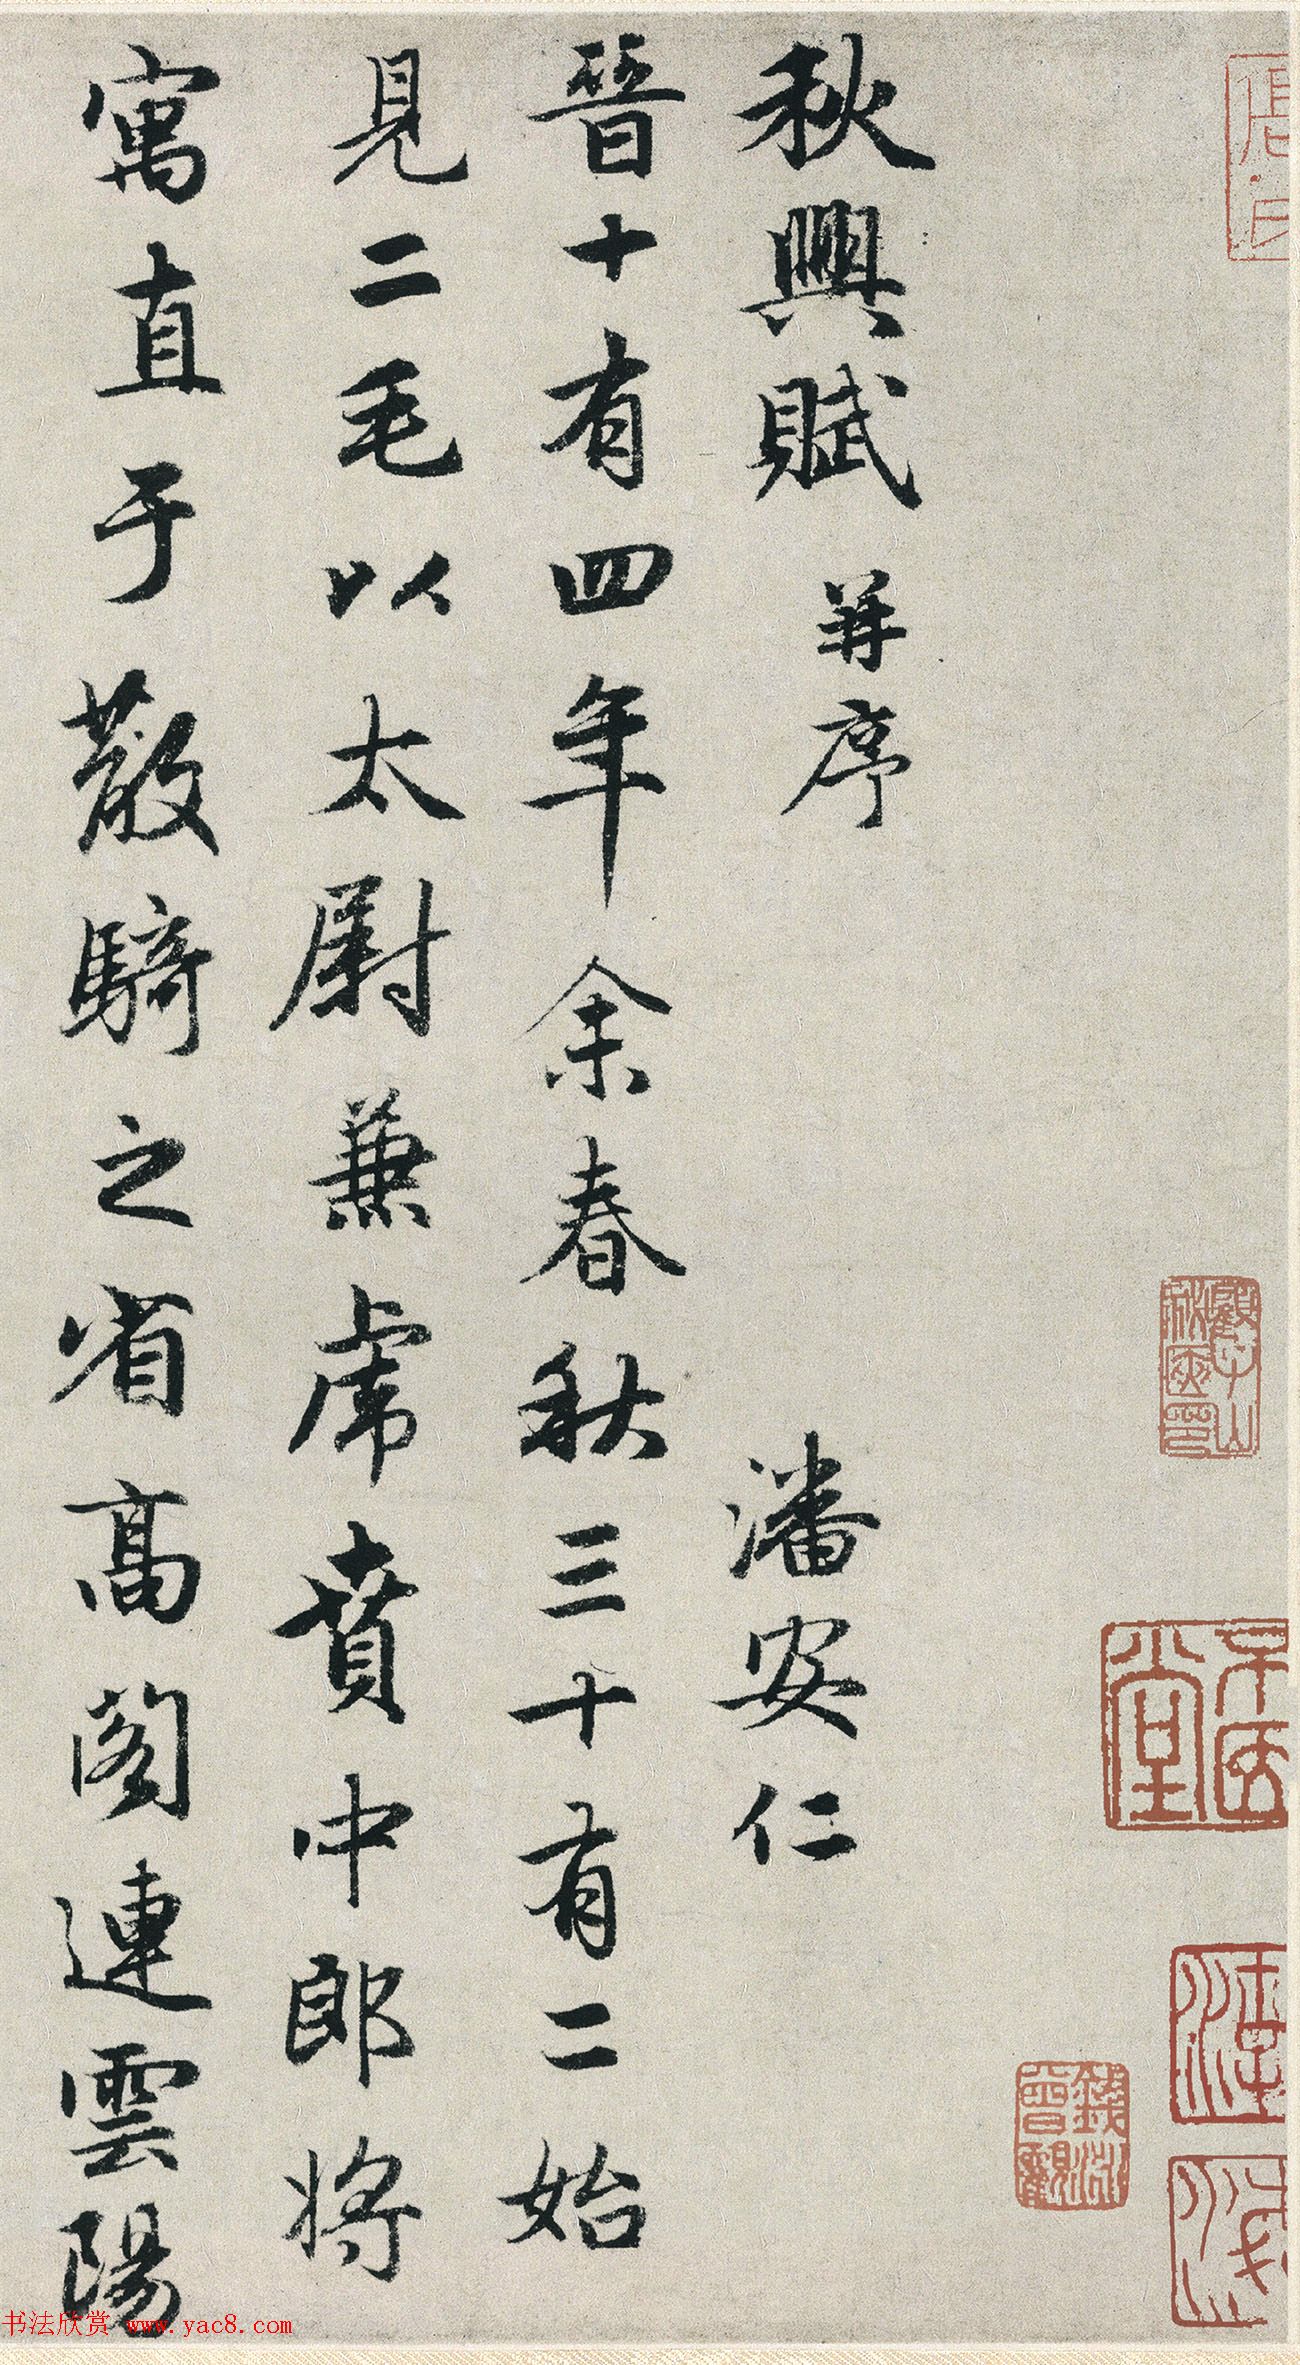 秋興賦 并序 潘安仁
晉十有四年余春秋三十有二始
見二毛以太尉兼虎賁中郎將
寓直于散騎之省高閣連雲陽
書法欣赏 www.yac8.com